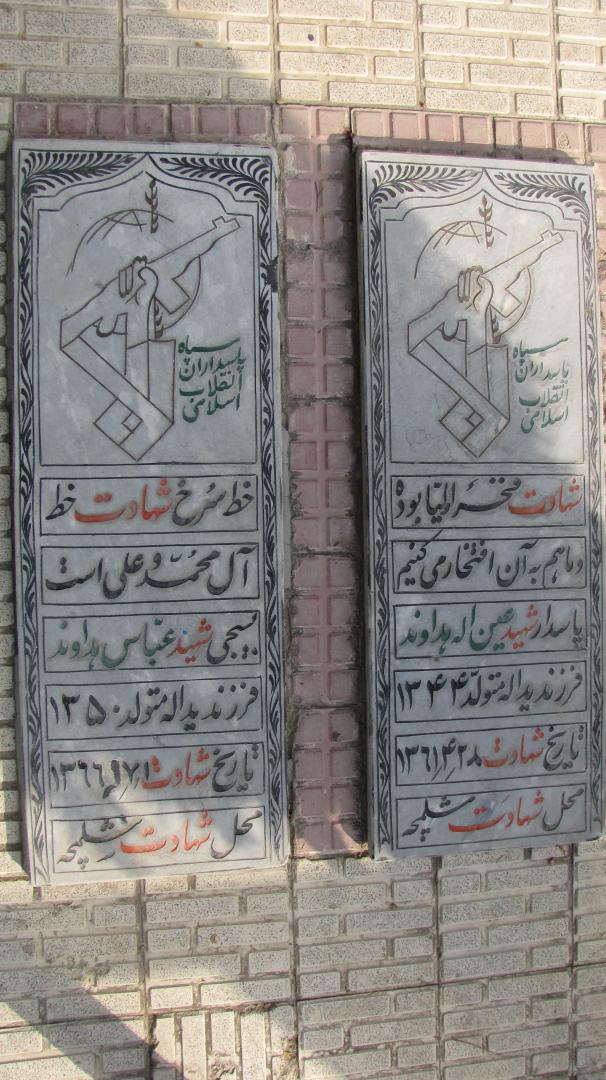 سپاه
پاسداران
انقلاب
اسلامی
شهادت مفخر اولیا بوده
و ما هم به آن افتخار می کنیم
پاسدار شهید عین اله هداوند
فرزند یداله متولد ۱۳۴۴
تاریخ شهادت ۱۳۶۱٫۴٫۲۸
محل شهادت شلمچه
سپاه
پاسداران
انقلاب
اسلامی
خط سرخ شهادت خط
آل محمد و علی است
بسیجی شهید عباس هداوند
فرزند یداله متولد ۱۳۵۰
تاریخ شهادت
محل شهادت شلمچه